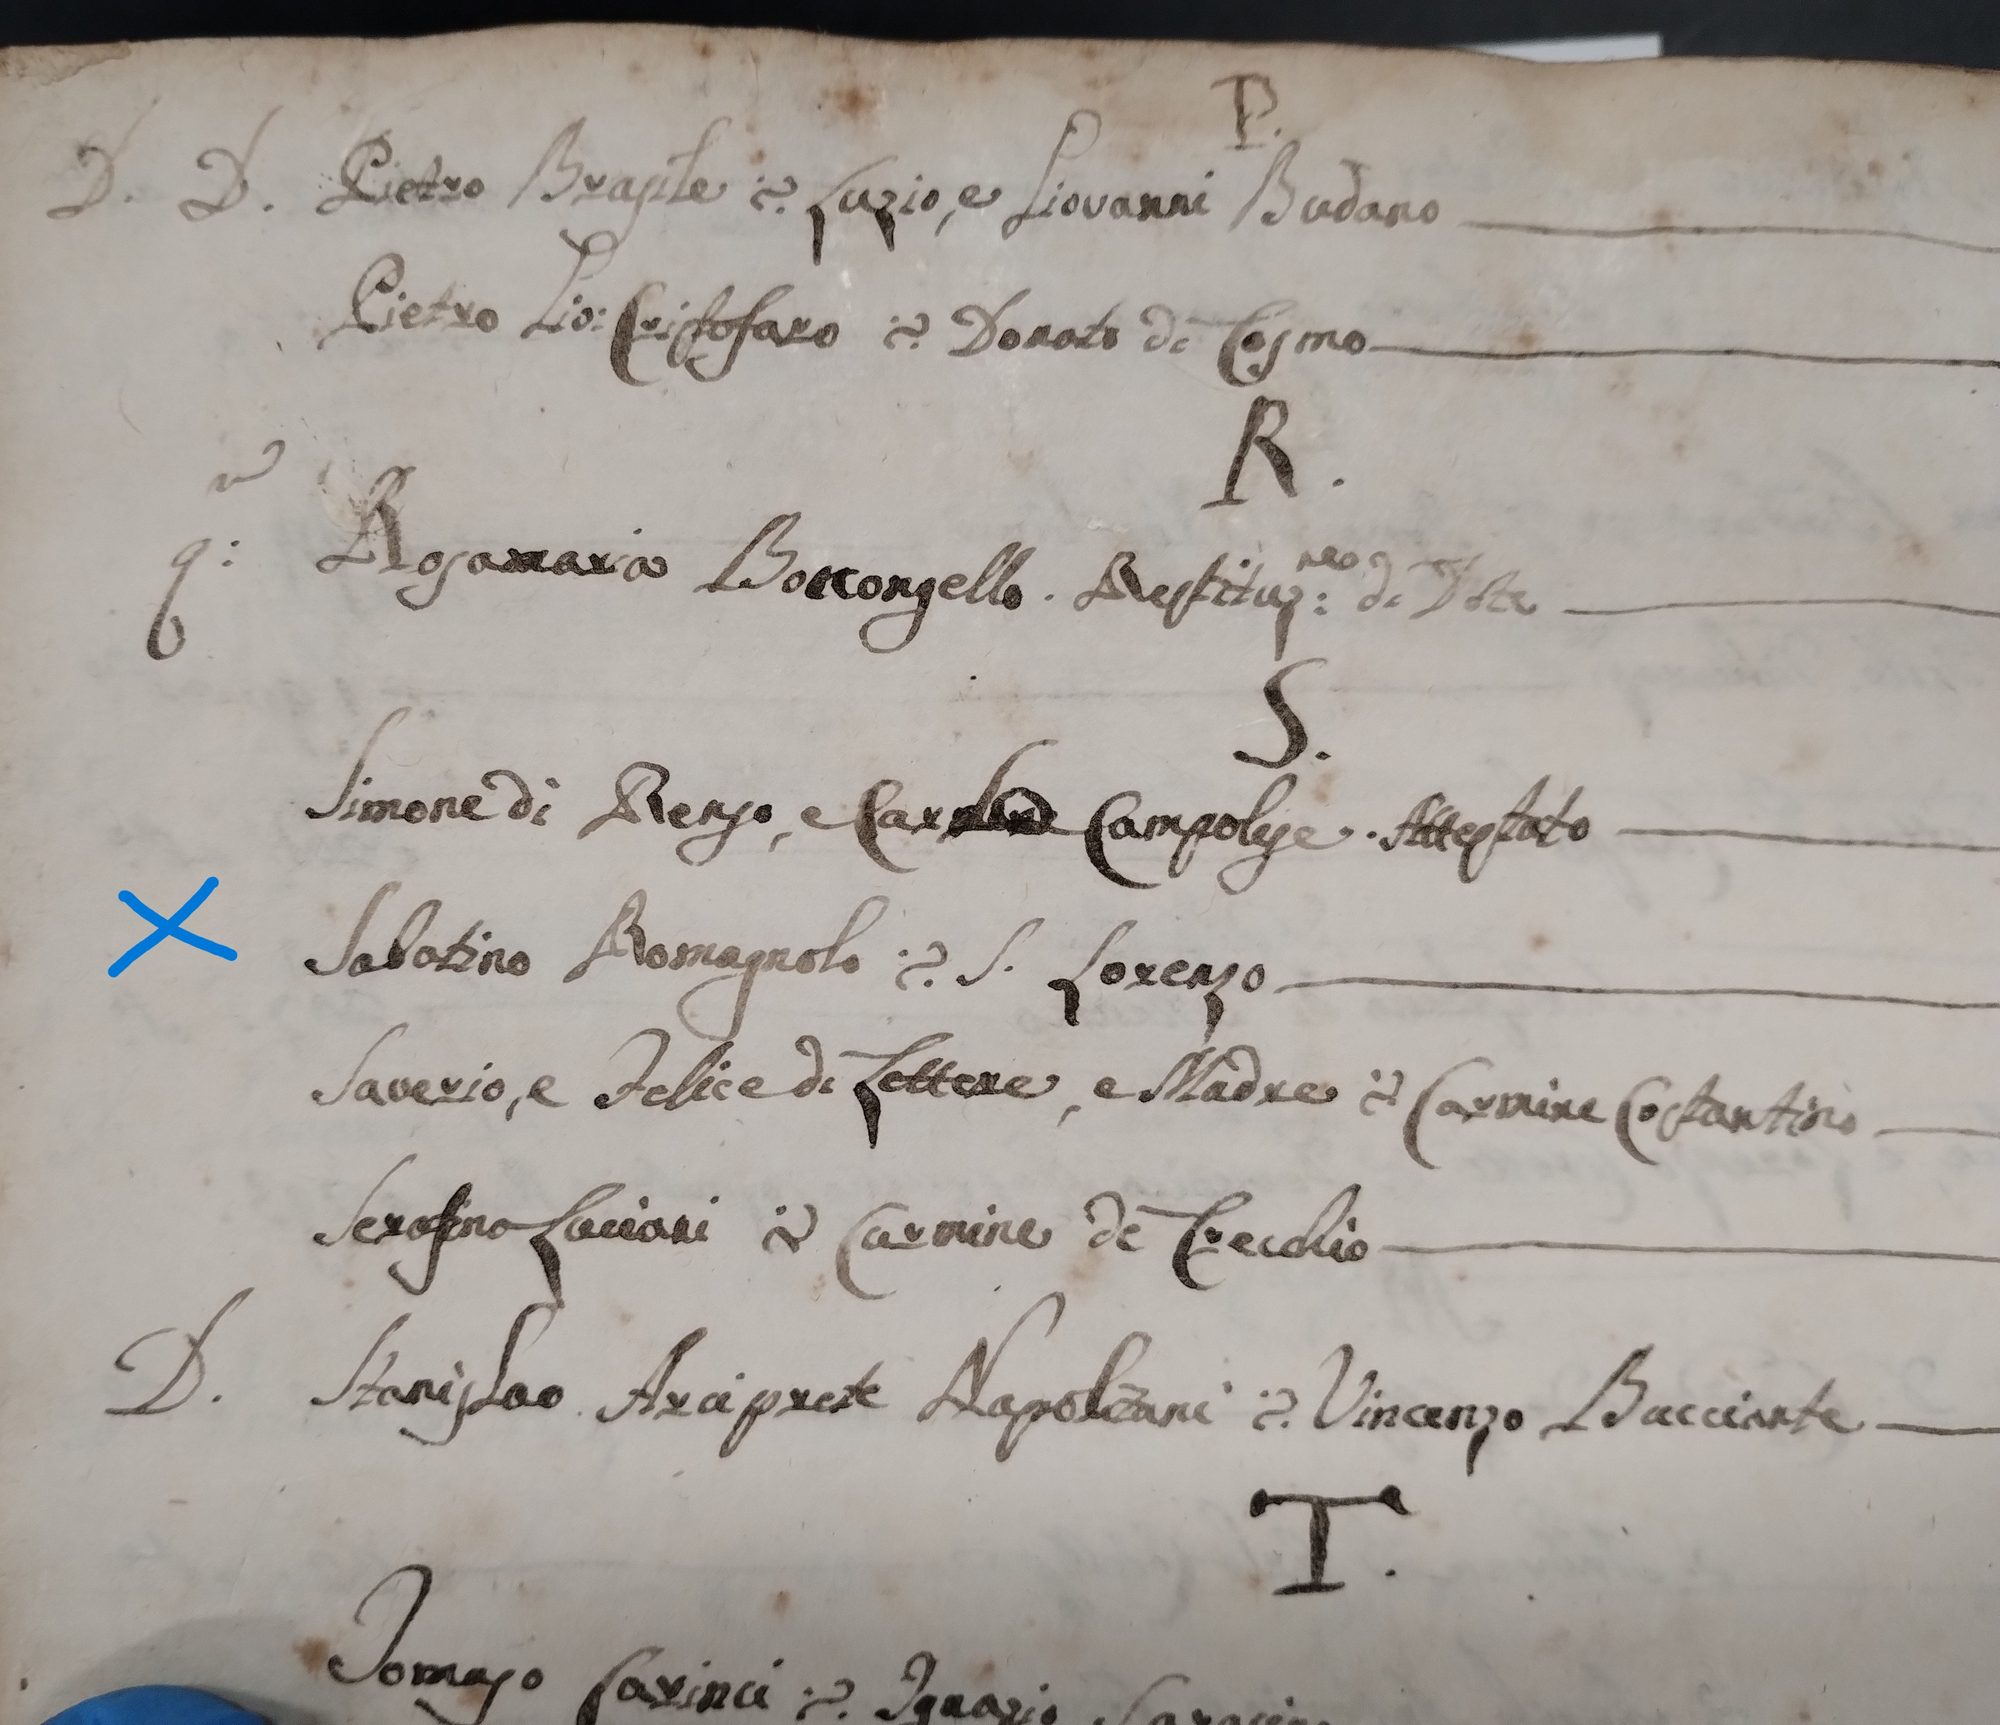 P.
D. D. Pietro Brasile :2. Luzio, e Giovanni Budano
Pietro Gio: Cristofaro :2. Donato di Cosmo
R.
q: Rosamaria Borcongello. Restituz:ne di Dote
S.
Simone di Renzo, e Campolese. Attestato
Sabatino Romagnolo :2. S. Lorenzo
Saverio, e Felice di Lettere, e Madre :2 Carmine Costantino
Serafino Laciari :2 Carmine de Crecchio
D. Stanislao Arciprete Napoleani :2. Vincenzo Bucciante
T.
Tomaso Carinci :2. Ignazio